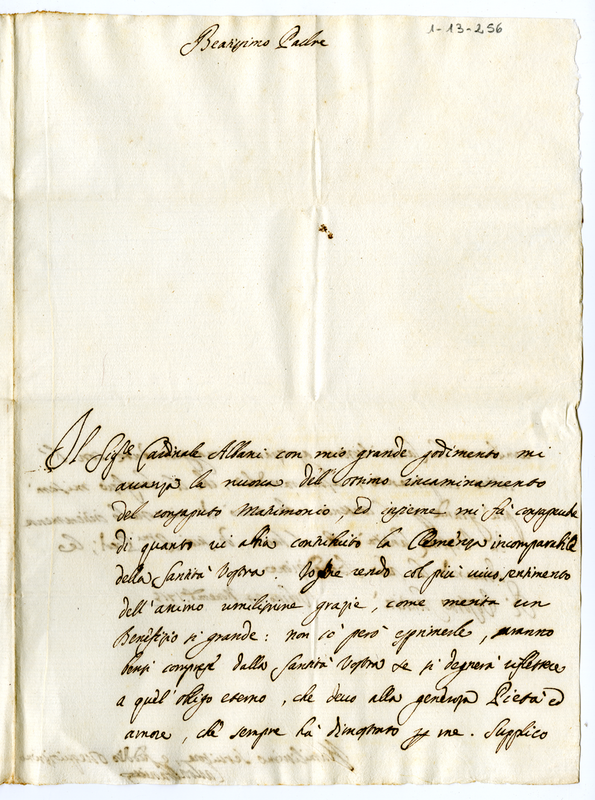 1-13-256
Beatissimo Padre
Il Sig.re Cardinale Albani con mio grande godimento mi
avanza la nuova dell'ottimo incaminamento
del consaputo Matrimonio, ed insieme mi fà consapevole
di quanto vi abia contribuito la Clemenza incomparabile
della Santità Vostra. rendo col più vivo sentimento
dell'animo umilissime grazie, come merita un
Benefizio si grande: non sò però esprimerle, saranno
bensi comprese dalla Santità Vostra se si degnerà riflettere
a quel'obligo eterno, che devo alla generosa Pietà ed
amore, che sempre hà dimostrato per me. Supplico